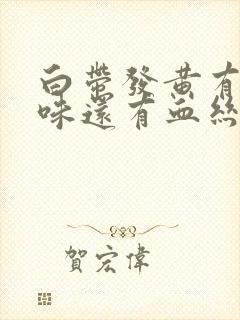 白帶發黃有
味還有血絲
賀宏偉